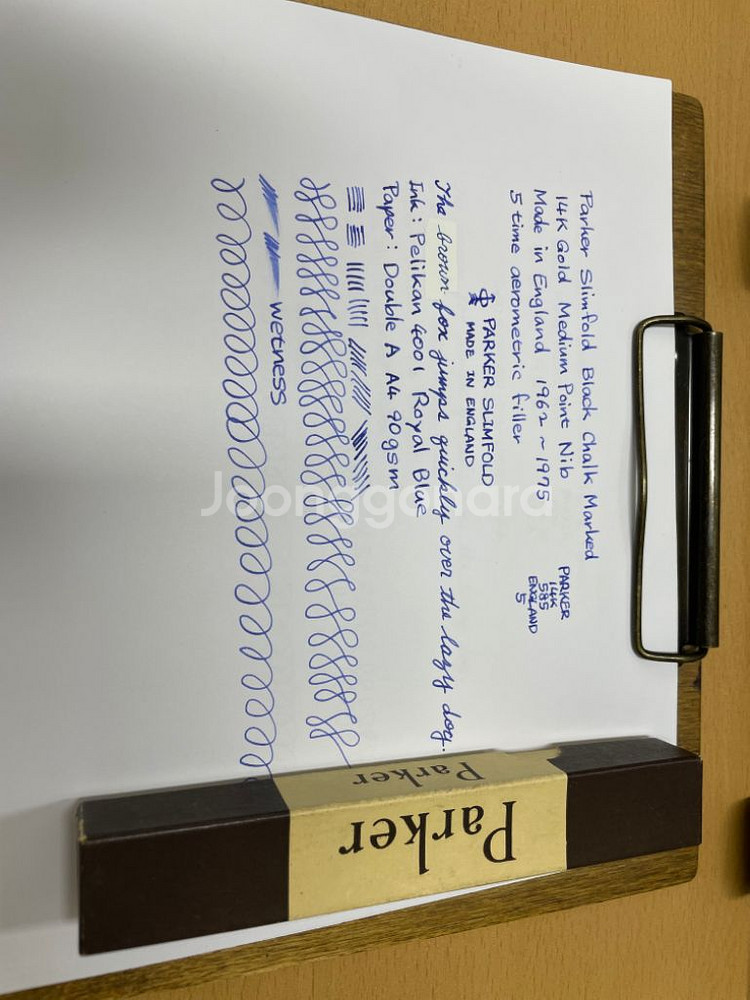 Parker Slimfold Black Chalk Marked
14K Gold Medium Point Nib
Made in England 1962 ~ 1975
5 time aerometric filler
PARKER
14K
585
ENGLAND
5
PARKER SLIMFOLD
MADE IN ENGLAND
The brown fox jumps quickly over the lazy dog.
Ink : Pelikan 4001 Royal Blue
Paper : Double A A4 90gsm
wetness
Parker
Parker
Joonggonara